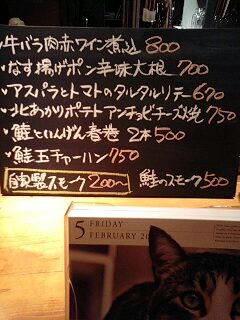 ・牛バラ肉赤ワイン煮込 800
・なす揚げポン辛味大根 700
・アスパラとトマトのタルタルソテー 670
・北あかりポテトアンチョビチーズ焼 750
・鮭といんげん春巻 2本500
・鮭玉チャーハン 750
自家製スモーク 200〜 鮭のスモーク 500
5 FRIDAY
FEBRUARY 20